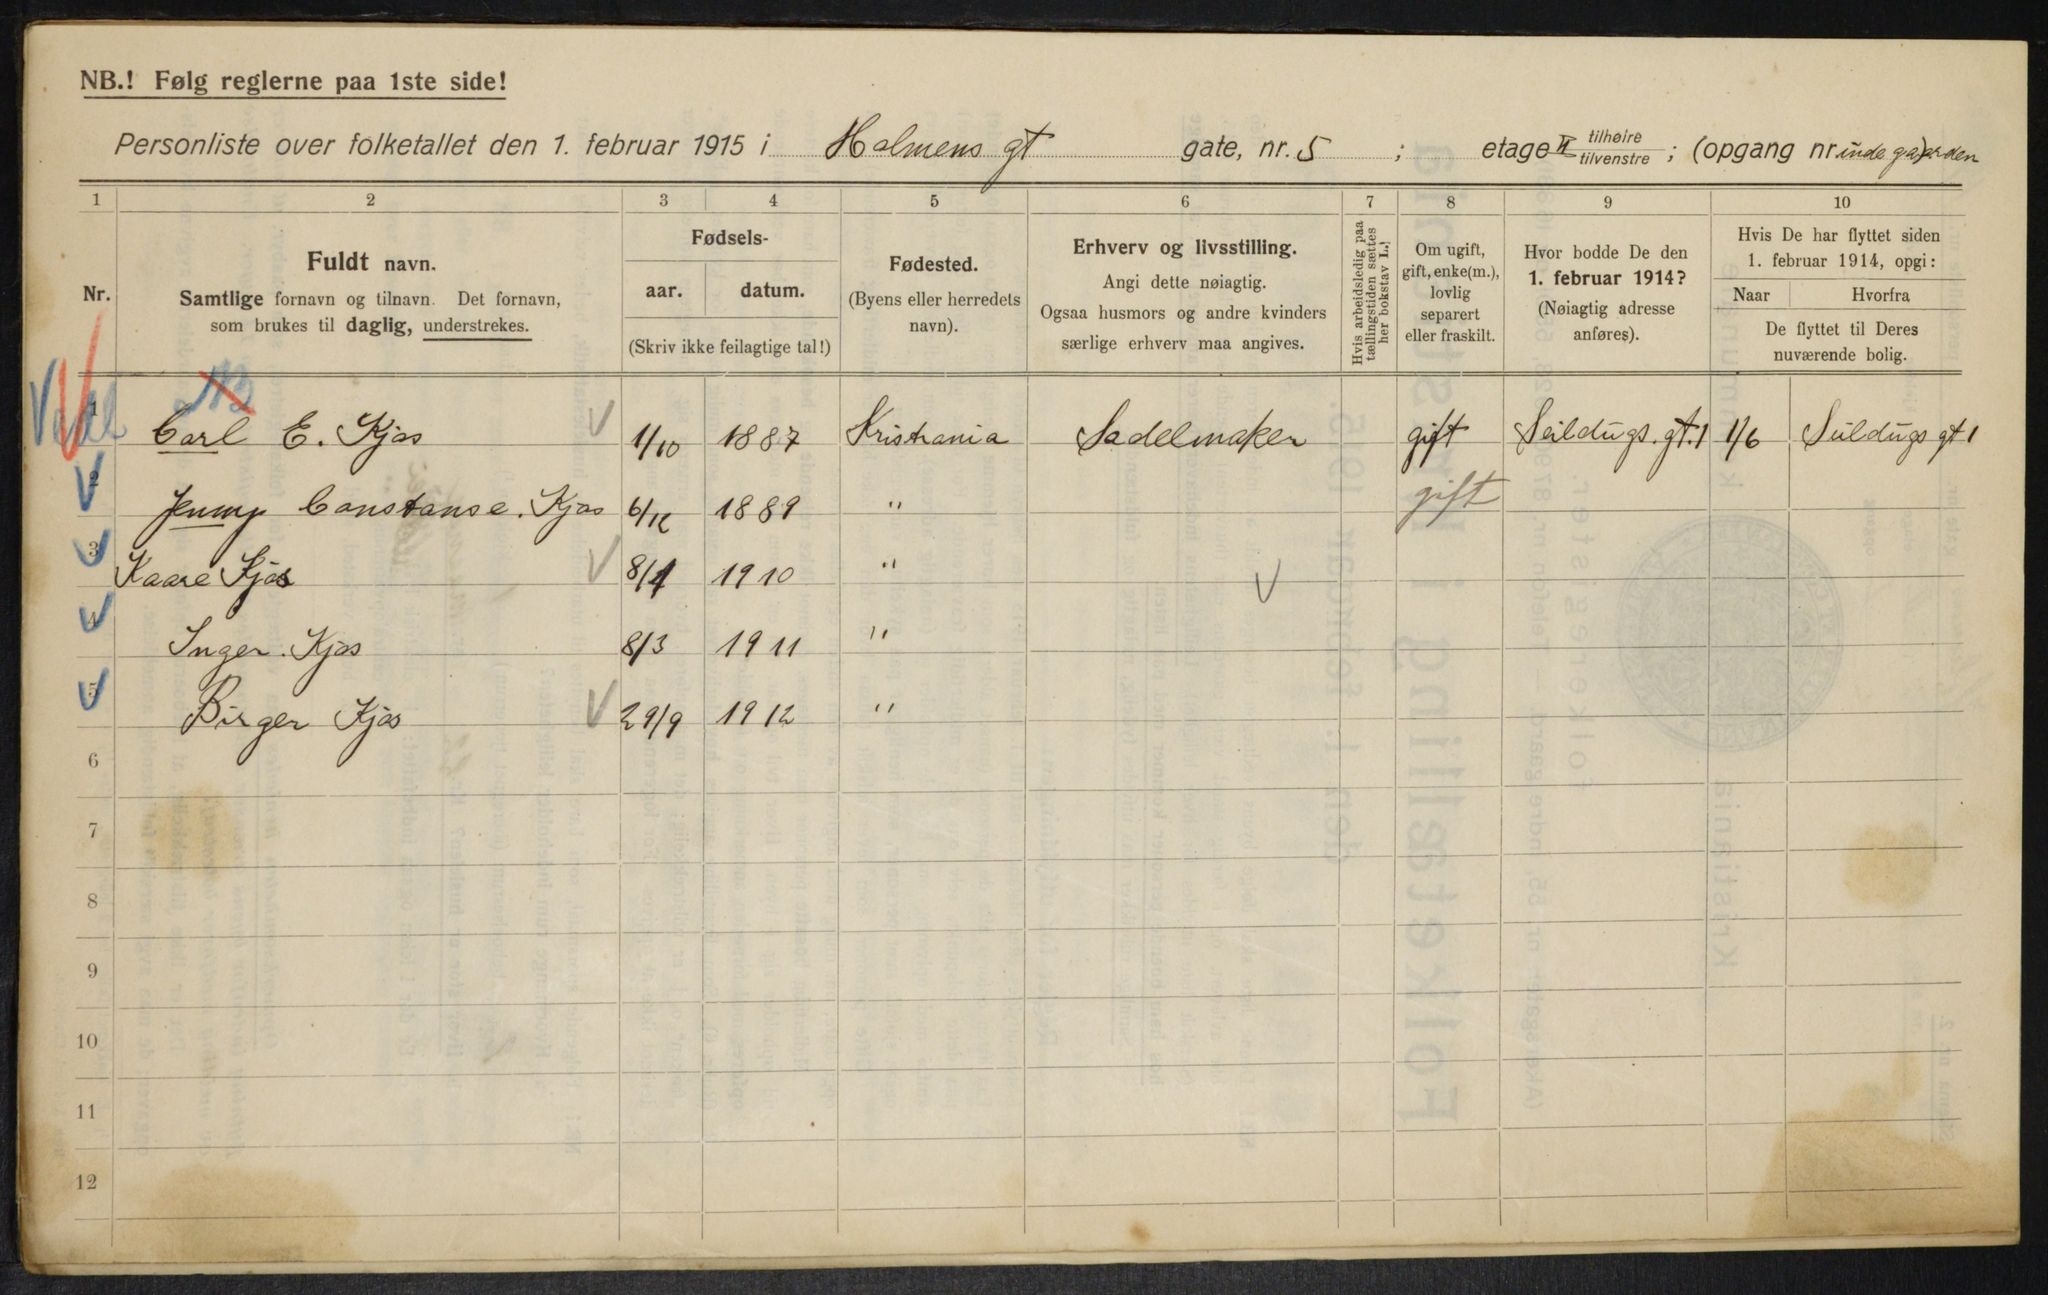 NB.! Følg reglerne paa 1ste side!
Personliste over folketallet den 1. februar 1915 i Holmens gt gate, nr. 5 ; etage II tilhøire tilvenstre ; (opgang nr. inde gaarden)
1 2 3 4 5 6 7 8 9 10
Nr.
Fuldt navn.
Samtlige fornavn og tilnavn. Det fornavn,
som brukes til daglig, understrekes.
Fødsels-
aar. datum.
(Skriv ikke feilagtige tal!)
Fødested.
(Byens eller herredets
navn).
Erhverv og livsstilling.
Angi dette nøiagtig.
Ogsaa husmors og andre kvinders
særlige erhverv maa angives.
Hvis arbeidsledig paa
tællingstiden sættes
her bokstav L.
Om ugift,
gift, enke(m.),
lovlig
separert
eller fraskilt.
Hvor bodde De den
1. februar 1914?
(Nøiagtig adresse
anføres).
Hvis De har flyttet siden
1. februar 1914, opgi:
Naar Hvorfra
De flyttet til Deres
nuværende bolig.
1 Carl E. Kjos 1/10 1887 Kristiania Sadelmaker gift Seildugs. gt. 1 1/6 Seildugs gt 1
2 Jenny Constanse. Kjos 6/12 1889 " gift
3 Kaare Kjos 8/1 1910 "
4 Inger. Kjos 8/3 1911 "
5 Birger Kjos 29/9 1912 "
6
7
8
9
10
11
12